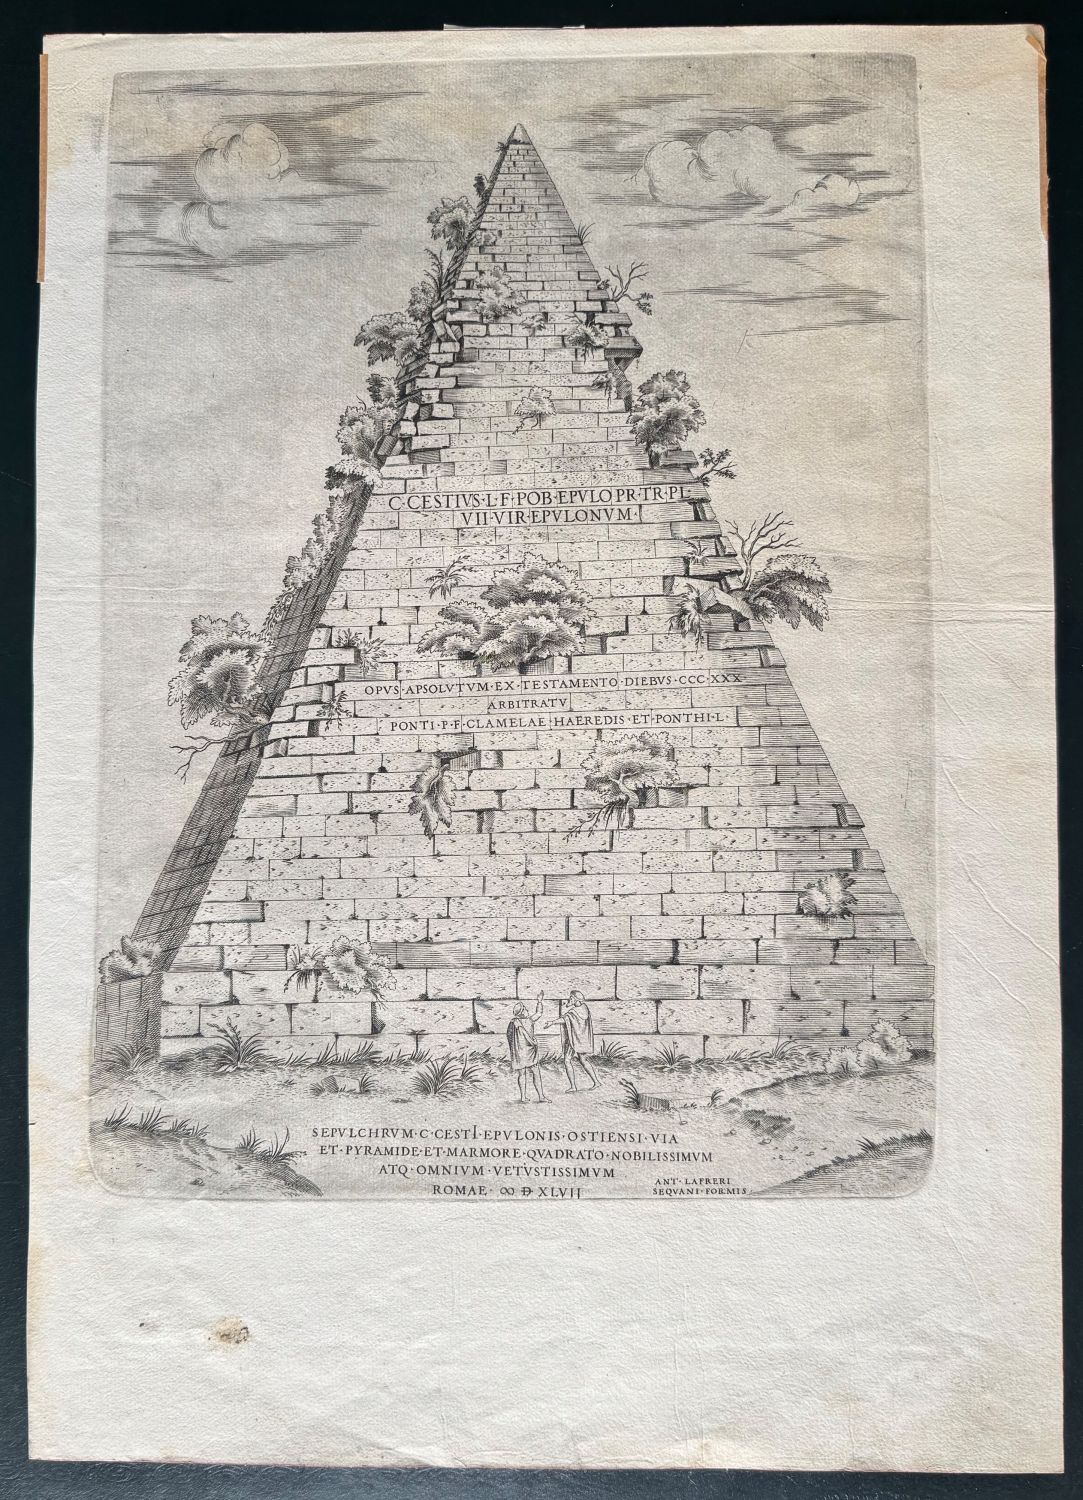 C·CESTIVS·L·F·POB·EPVLO·PR·TR·PL
VII·VIR·EPVLONVM
OPVS·APSOLVTVM·EX·TESTAMENTO·DIEBVS·CCC·XXX·
ARBITRATV
PONTI·P·F·CLAMELAE·HAEREDIS·ET·PONTHI·L·
SEPVLCHRVM·C·CESTI·EPVLONIS·OSTIENSI·VIA
ET·PYRAMIDE·ET·MARMORE·QVADRATO·NOBILISSIMVM
ATQ·OMNIVM·VETVSTISSIMVM
ROMAE·ↀ D XLVII
ANT·LAFRERI
SEQVANI·FORMIS